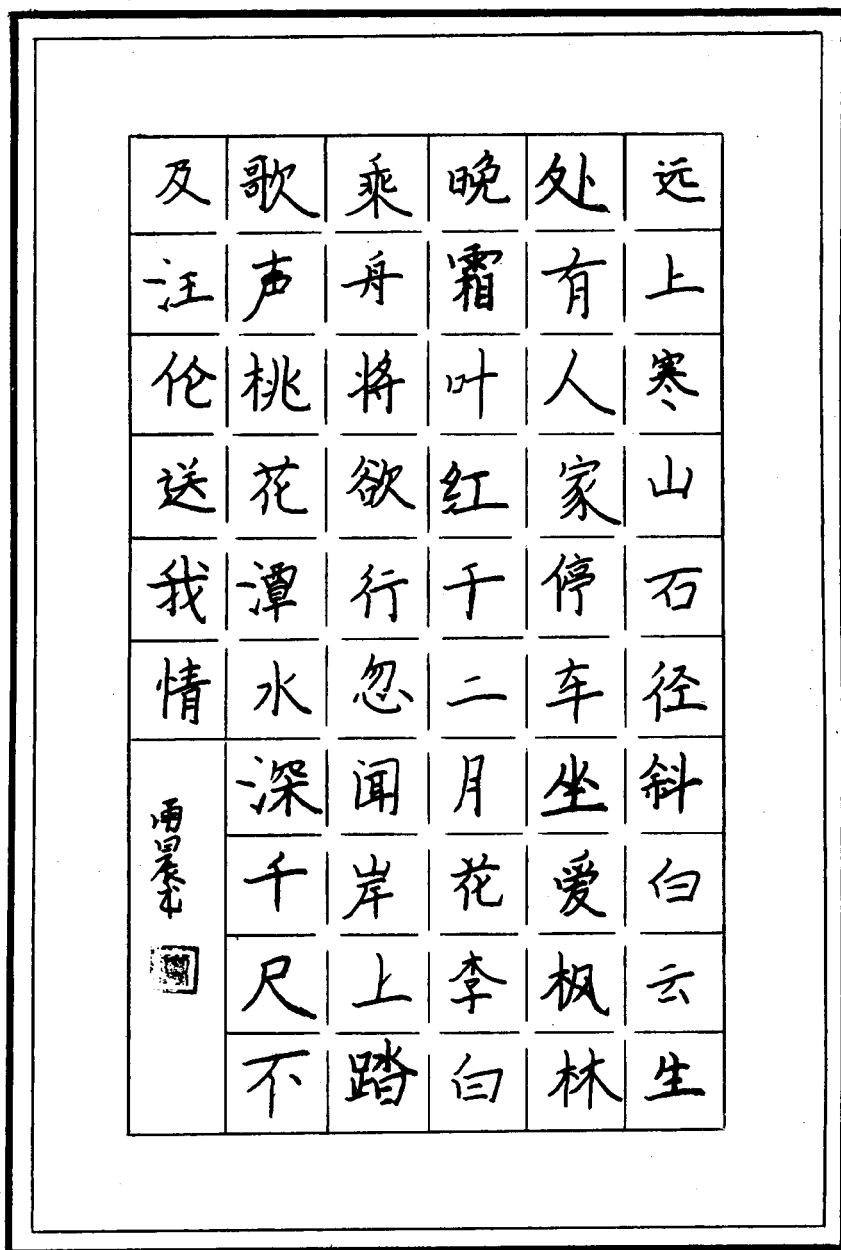 远上寒山石径斜白云生
处有人家停车坐爱枫林
晚霜叶红于二月花李白
乘舟将欲行忽闻岸上踏
歌声桃花潭水深千尺不
及汪伦送我情